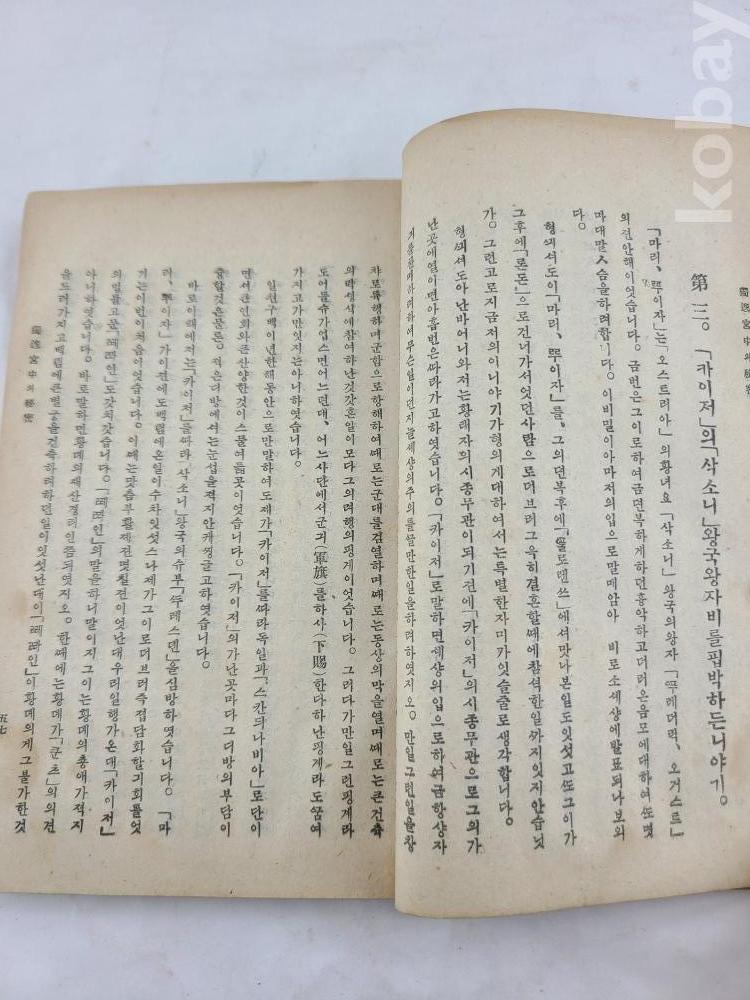 kobay
獨逸宮中의秘密
第三。「카이저」의「삭소니」왕국왕자비를핍박하든니야기。
「마리、루이자」는「오스트리아」의황녀요「삭소니」왕국의왕자「뚜레더릭、오거스트」
의견안해이엇습니다。금번은그이로하여금던복하게하던흉악하고더러온음모에대하여또몃
마대말슴을하려합니다。이비밀이아마저의입으로말메암아 비로소세상에발표되나보외
다。
형쎄셔도이「마리、루이자」를、그의던복후에「뚤로랜쓰」에셔맛나본일도잇섯고또그이가
그후에「론돈」으로건너가셔엇던사람으로더브러그윽히결혼할때에참셕한일까지잇지안습닛
가。그런고로지금저의이니야기가형의게대하여셔는특별한자미가잇슬줄로생각합니다。
형쎄셔도아난바어니와저는황태자의시종무관이되기젼에「카이저」의시종무관으로그의가
난곳에열이면아홉번은따라가고하엿습니다。「카이저」로말하면세상의입으로하여금항상자
긔를찬미하려하여무슨일이던지늘세상의주의를끌만한일을하려하엿지오。만일그런일을창
챠로륙행하며군함으로항해하며때로는군대를검열하며때로는동상의막을열며때로는큰건축
의락셩식에참여하난것갓흔일이모다그의려행의핑계이엇습니다。그러다가만일그런핑계라
도어들슈가업스면어느련대、어느사단에셔군긔(軍旗)를하사(下賜)한다하난핑계라도꿈여
가지고가만잇지는아니하엿습니다。
일쳔구백이년한해동안으로만말하여도제가「카이저」를따라독일과「스칸듸나비아」로단이
면셔관인회와큰산양한것이스물여듧곳이엇습니다。「카이저」의가난곳마다그디방의부담이
중할것은물론。적은디방에셔는눈섭을찍지안케찡글고하엿습니다。
바로이해에저는「카이저」를따라「삭소니」왕국의슈부「뚜레스덴」을심방하엿습니다。「마
리、루이자」가이젼에도백림에온일이수차잇섯스나제가그이로더브러즉접담화할긔회를엇
기는이번이처음이엇습니다。이때는맛츰부활제젼몃칠젼이엇난대우리일행가온대「카이저」
의일톱고문「뻬롸인」도갓치갓습니다。「뻬롸인」의말을하니말이지그이는황뎨의총애가적지
아니하엿습니다。바로말하면황뎨의재산경리인쯤되엿지오。한때에는황뎨가「쿤츠」의의견
을드러가지고백림에큰별궁을건축하려하던일이잇섯난대이「뻬롸인」이황뎨의게그불가한것
獨逸宮中의秘密
五七